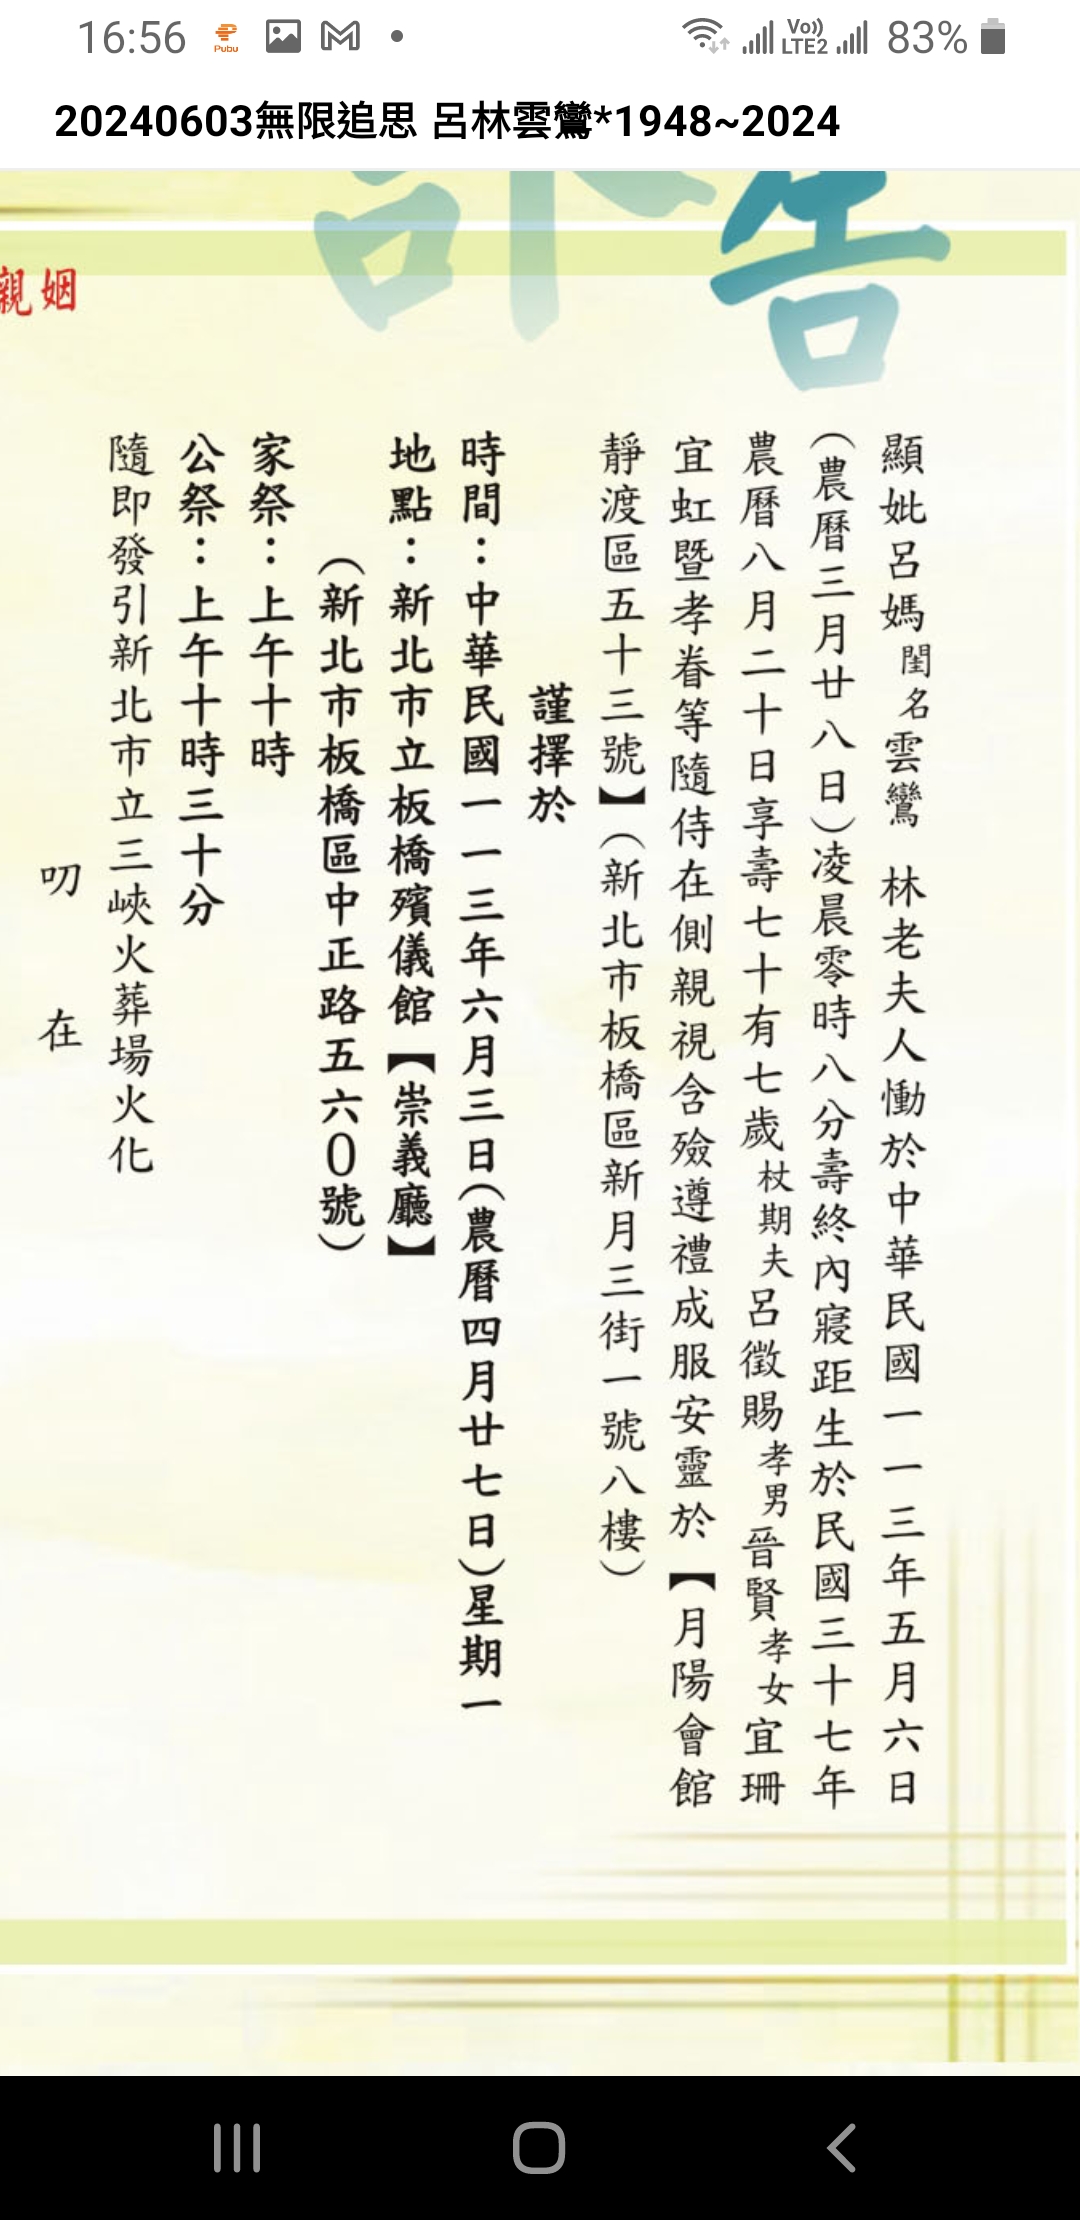 16:56
Pubu
Vo))
LTE2
83%
20240603無限追思 呂林雲鸞*1948~2024
訃告
顯妣呂媽閨名雲鸞 林老夫人慟於中華民國一一三年五月六日
(農曆三月廿八日)凌晨零時八分壽終內寢距生於民國三十七年
農曆八月二十日享壽七十有七歲杖期夫呂徵賜孝男晉賢孝女宜珊
宜虹暨孝眷等隨侍在側親視含殮遵禮成服安靈於【月陽會館
靜渡區五十三號】(新北市板橋區新月三街一號八樓)
謹擇於
時間:中華民國一一三年六月三日(農曆四月廿七日)星期一
地點:新北市立板橋殯儀館【崇義廳】
(新北市板橋區中正路五六0號)
家祭:上午十時
公祭:上午十時三十分
隨即發引新北市立三峽火葬場火化
叨在
姻親